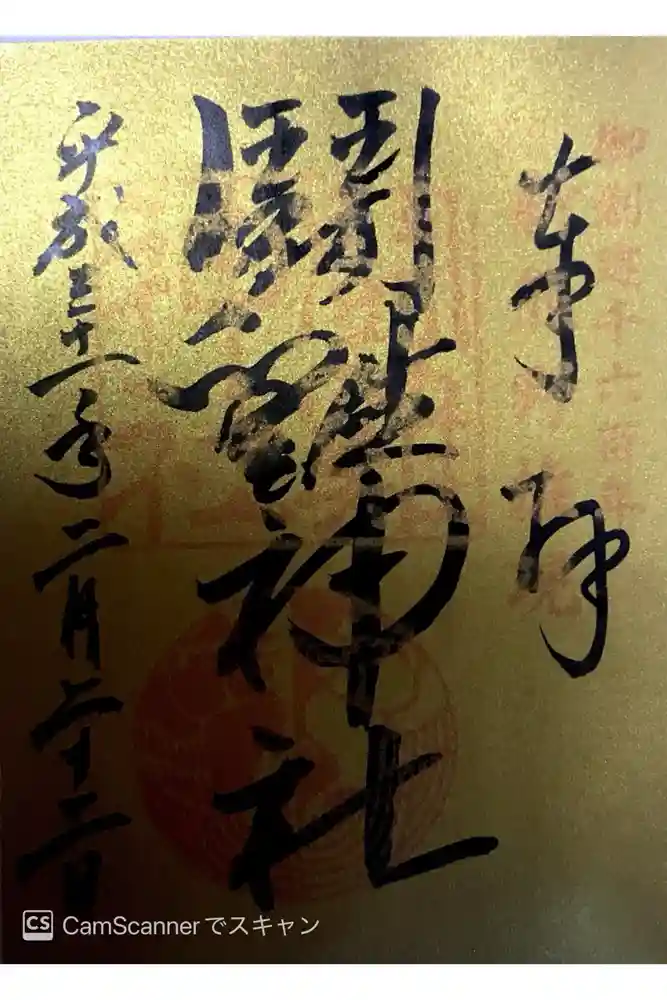 御創建千六百年
奉拝
鬪雞神社
平成三十一年二月二十二日
CamScannerでスキャン